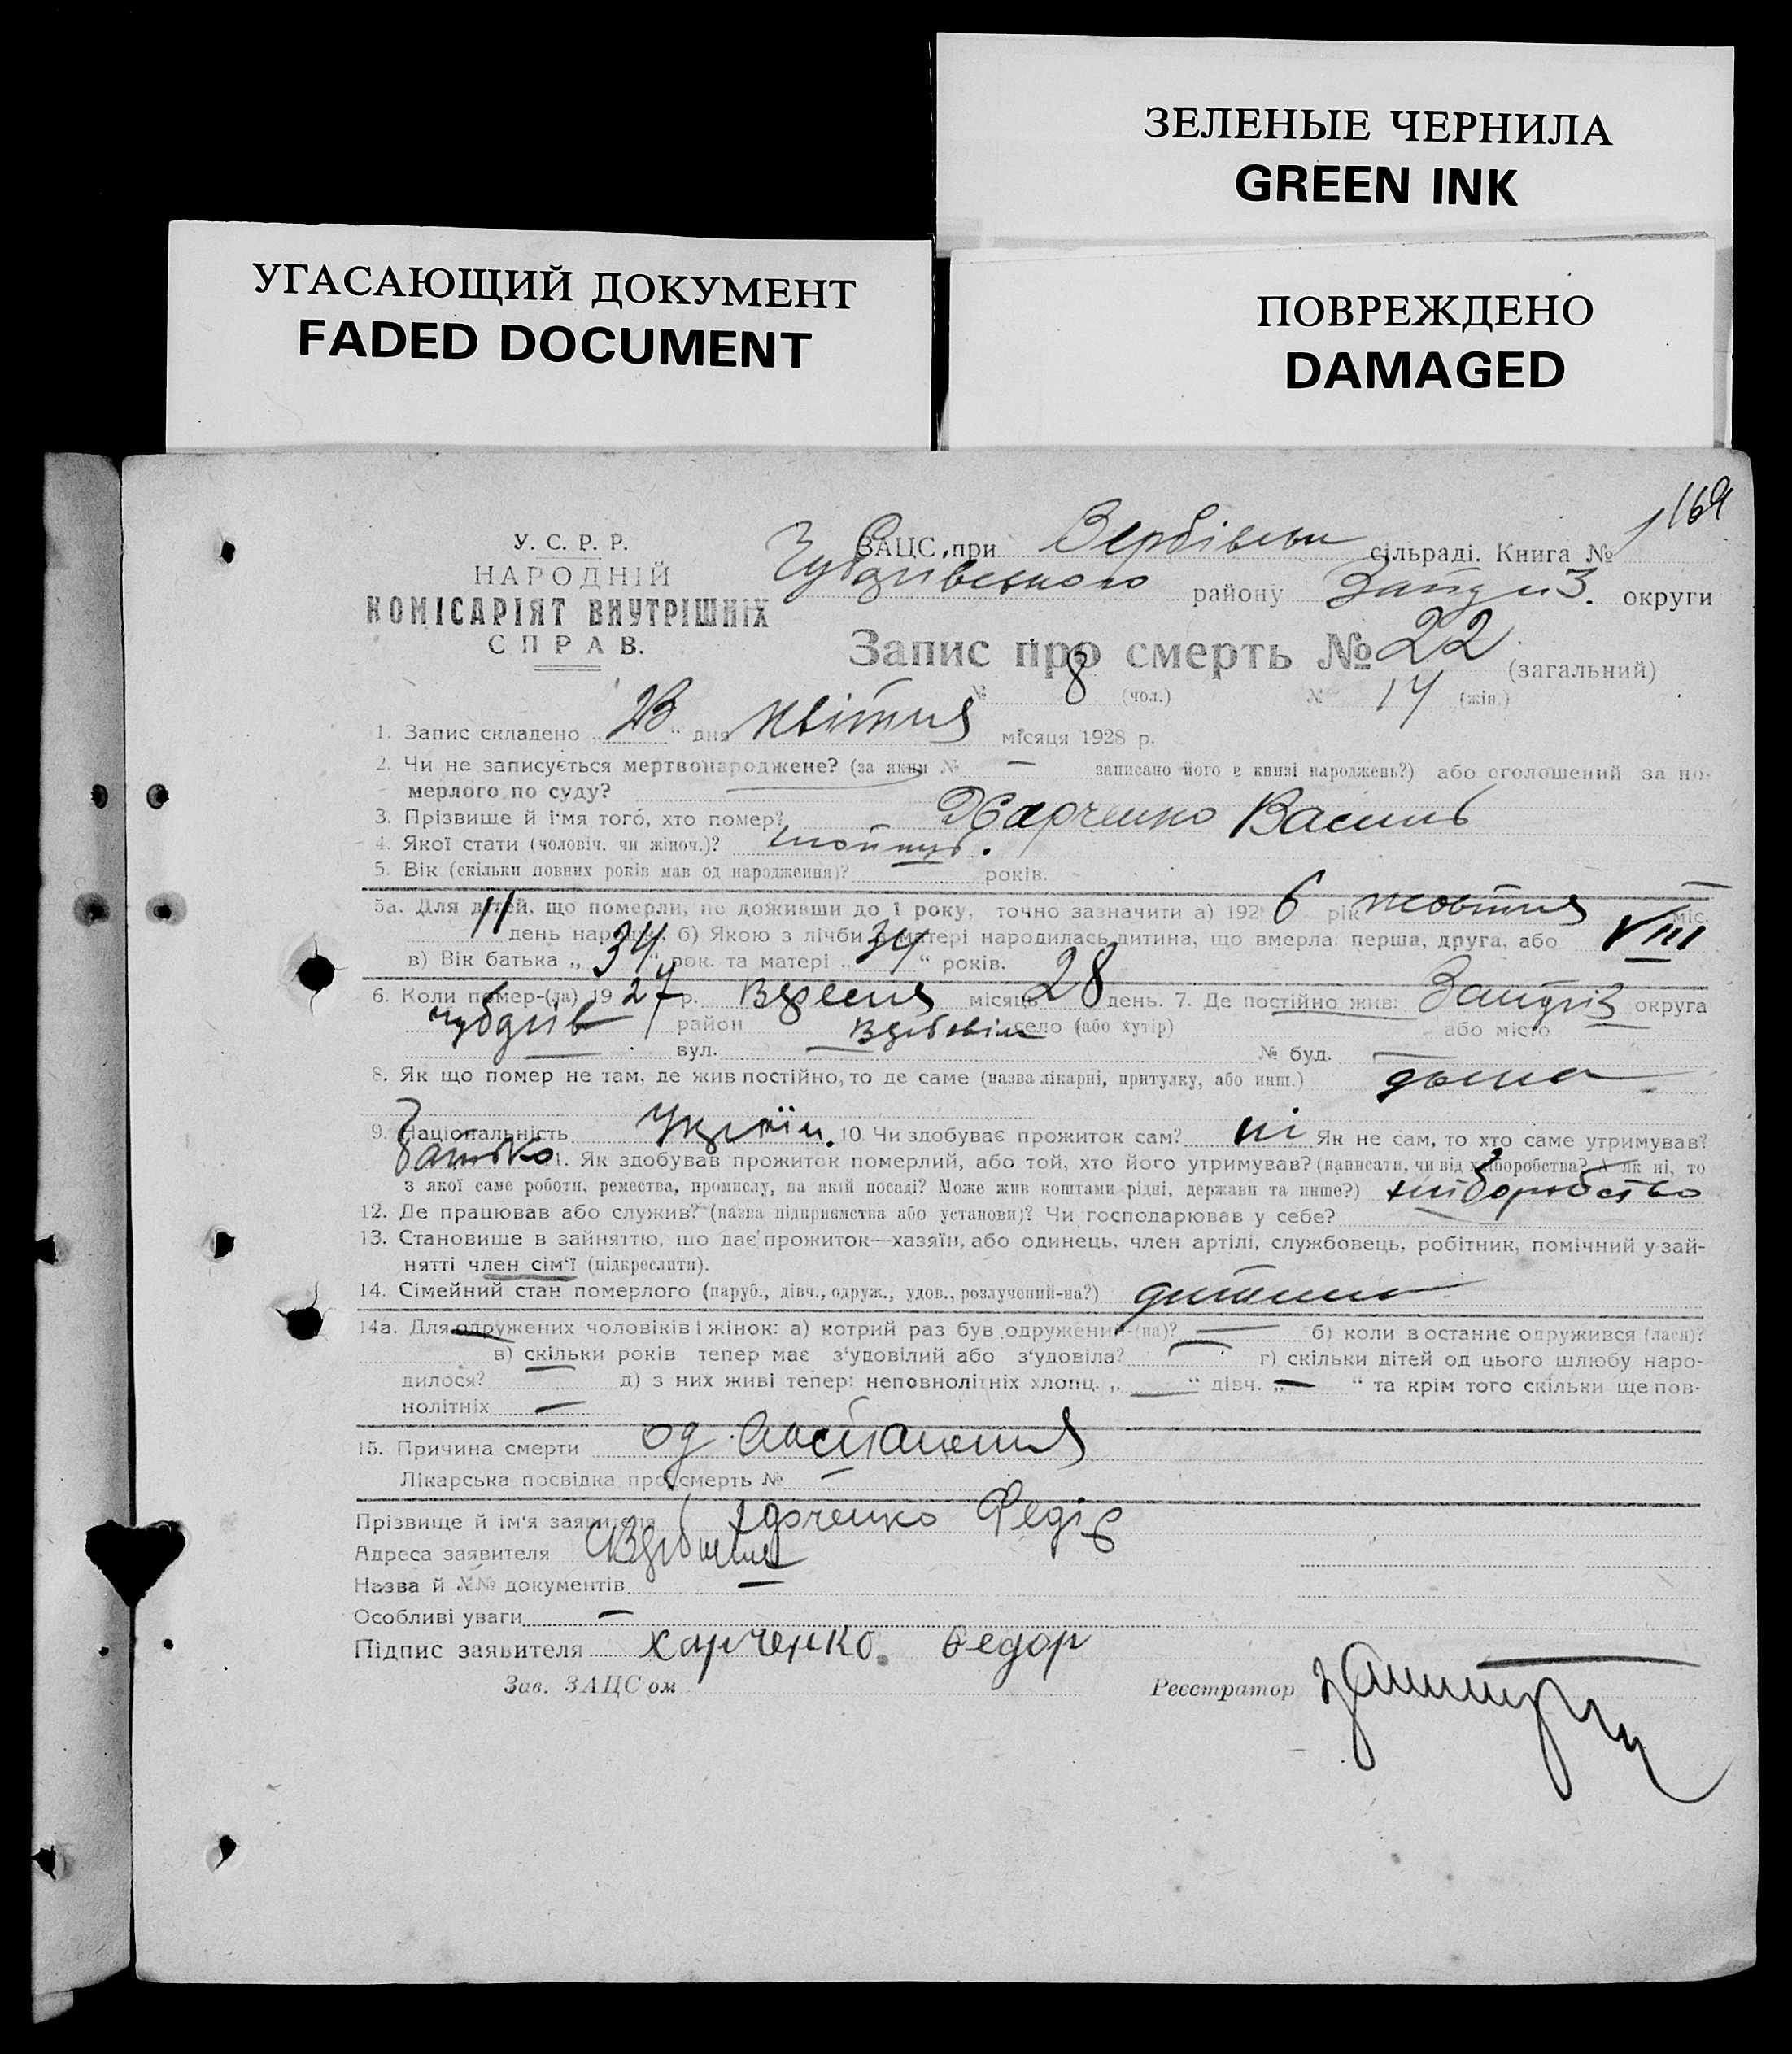 ЗЕЛЕНЫЕ ЧЕРНИЛА
GREEN INK
УГАСАЮЩИЙ ДОКУМЕНТ
FADED DOCUMENT
ПОВРЕЖДЕНО
DAMAGED
169
У. С. Р. Р.
НАРОДНІЙ
КОМІСАРІЯТ ВНУТРІШНІХ
СПРАВ.
ЗАЦС при сільраді. Книга № 1
району округи
Запис про смерть № 22 (загальний)
№ 8 (чол.) № 14 (жін.)
1. Запис складено „23“ дня квітня місяця 1928 р.
2. Чи не записується мертвонароджене? (за яким № — записано його в книзі народжень?) або оголошений за по-
мерлого по суду?
3. Прізвище й ім'я того, хто помер? Харченко Василь
4. Якої стати (чоловіч. чи жіноч.)?
5. Вік (скільки повних років мав од народження)? років.
5а. Для дітей, що померли, не доживши до 1 року, точно зазначити а) 1926 рік жовтня міс.
11 день народж. б) Якою з лічби у матері народилась дитина, що вмерла: перша, друга, або VIII
в) Вік батька „34“ рок. та матері „34“ років.
6. Коли помер-(ла) 1927 р. Вересня місяць 28 день. 7. Де постійно жив: округа
район село (або хутір) або місто
вул. № буд. —
8. Як що помер не там, де жив постійно, то де саме (назва лікарні, притулку, або инш.) дома
9. Національність Україн. 10. Чи здобуває прожиток сам? ні Як не сам, то хто саме утримував?
батько 11. Як здобував прожиток померлий, або той, хто його утримував? (написати, чи від хліборобства? А як ні, то
з якої саме роботи, ремества, промислу, на якій посаді? Може жив коштами рідні, держави та инше?) хліборобство
12. Де працював або служив? (назва підприємства або установи)? Чи господарював у себе?
13. Становище в зайняттю, що дає прожиток—хазяїн, або одинець, член артілі, службовець, робітник, помічний у зай-
нятті член сім'ї (підкреслити).
14. Сімейний стан померлого (паруб., дівч., одруж., удов., розлучений-на?) дитина
14а. Для одружених чоловіків і жінок: а) котрий раз був одружений-(на)? — б) коли в останнє одружився (лася)?
— в) скільки років тепер має з'удовілий або з'удовіла? — г) скільки дітей од цього шлюбу наро-
дилося? — д) з них живі тепер: неповнолітніх хлопц. „—“ дівч. „—“ та крім того скільки ще пов-
нолітніх —
15. Причина смерти од
Лікарська посвідка про смерть № —
Прізвище й ім'я заявителя Харченко Федір
Адреса заявителя
Назва й №№ документів —
Особливі уваги —
Підпис заявителя Харченко Федор
Зав. ЗАЦС'ом Реєстратор